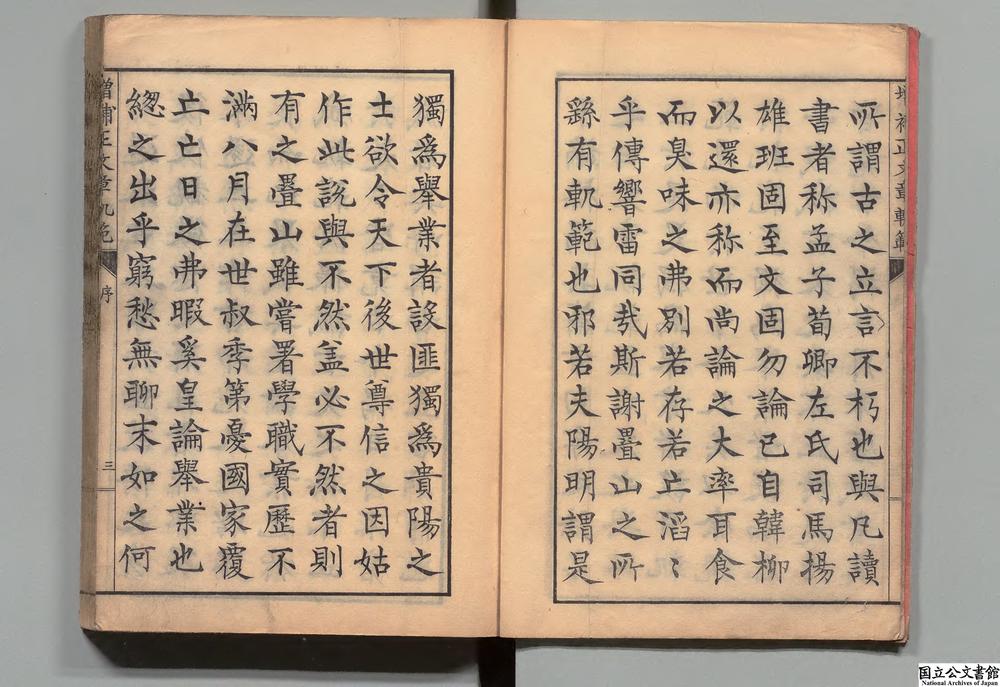 所謂古之立言不朽也與凡讀
書者称孟子荀卿左氏司馬揚
雄班固至文固勿論已自韓柳
以還亦称而尚論之大率耳食
而臭味之弗別若存若亡滔〻
乎傳響雷同哉斯謝疊山之所
繇有軌範也邪若夫陽明謂是
獨爲舉業者設匪獨爲貴陽之
士欲令天下後世尊信之因姑
作此說與不然盖必不然者則
有之疊山雖嘗署學職實歷不
滿八月在世叔季第憂國家覆
亡亡日之弗暇奚皇論舉業也
緫之出乎窮愁無聊末如之何
序
三
国立公文書館
National Archives of Japan